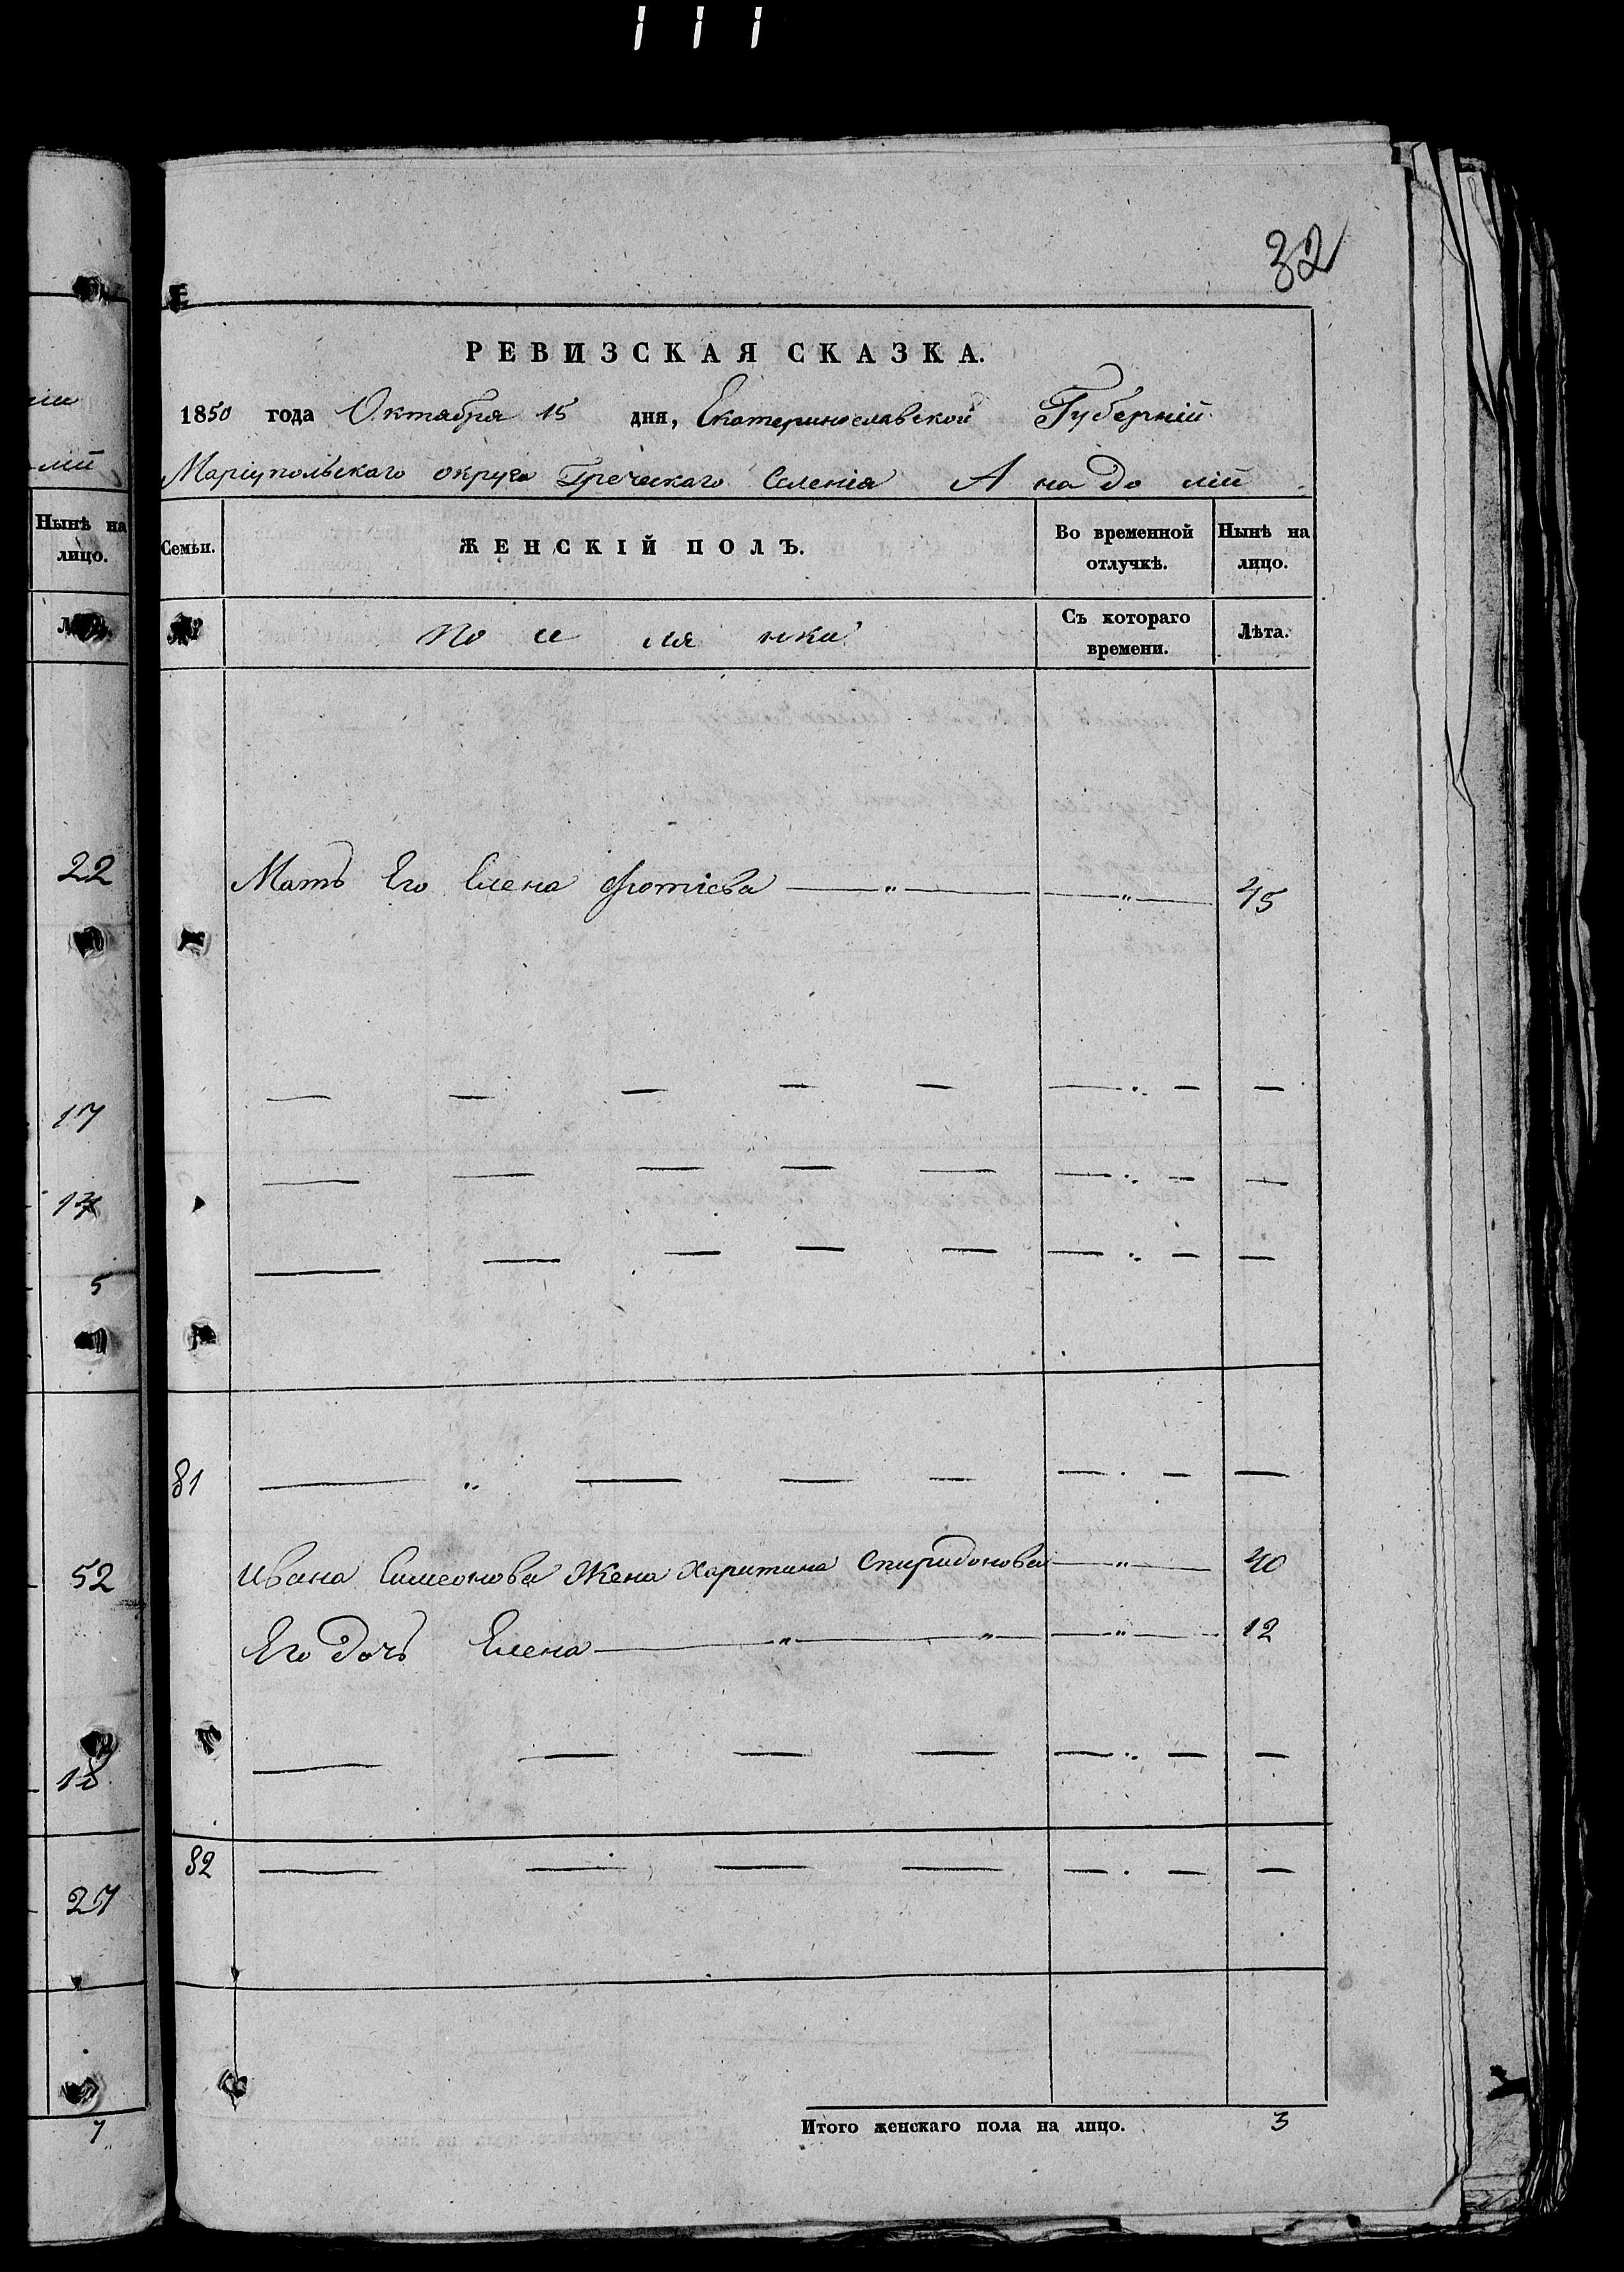 32
РЕВИЗСКАЯ СКАЗКА.
1850 года Октября 15 дня, Екатеринославской Губерніи
Маріупольскаго округа Греческаго Селенія Анадоліи
Семьи. ЖЕНСКІЙ ПОЛЪ. Во временной отлучкѣ. Нынѣ на лицо.
Съ котораго времени. Лѣта.
Мать Его Елена Фотіева — „ — — „ — 45
81
Ивана Симеонова Жена Харитина Спиридонова — „ — 40
Его дочь Елена — „ — „ — „ — 12
82
Итого женскаго пола на лицо. 3
Нынѣ на
лицо.
22
17
5
52
18
27
7